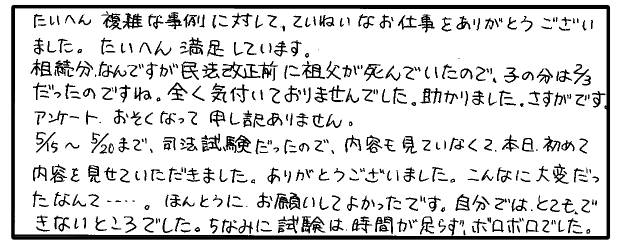 たいへん 複雑な事例に対して、ていねいなお仕事をありがとうござい
ました。たいへん満足しています。
相続分なんですが民法改正前に祖父が死んでいたので、子の分は2/3
だったのですね。全く気付いておりませんでした。助かりました。さすがです。
アンケート おそくなって 申し訳ありません。
5/15〜 5/20まで、司法試験だったので、内容も見ていなくて、本日 初めて
内容を見せていただきました。ありがとうございました。こんなに大変だっ
たなんて……。ほんとうに お願いしてよかったです。自分では、とても、で
きないところでした。ちなみに試験は、時間が足らず、ボロボロでした。